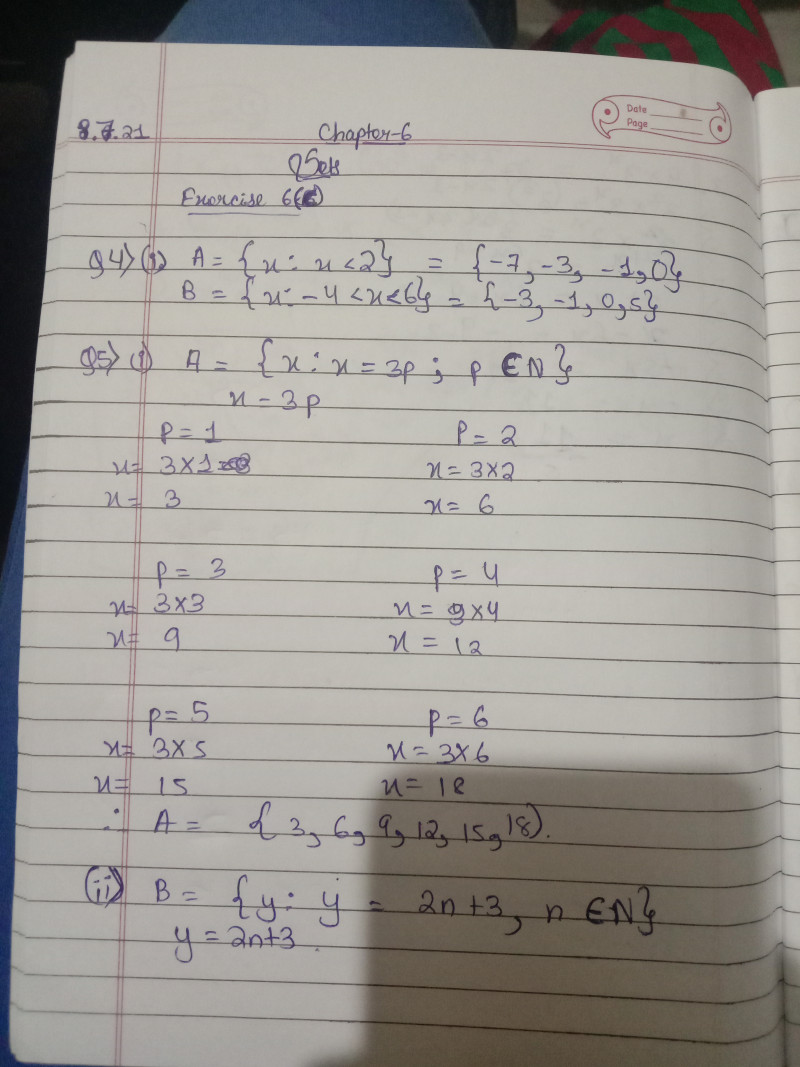 Date
Page
8.7.21 Chapter-6
Sets
Exercise 6()
Q4) (i) A = {x : x < 2} = {-7, -3, -1, 0}
B = {x : -4 < x < 6} = {-3, -1, 0, 5}
Q5) (i) A = {x : x = 3p ; p ∈ N}
x = 3p
p = 1 p = 2
x = 3×1 x = 3×2
x = 3 x = 6
p = 3 p = 4
x = 3×3 x = 3×4
x = 9 x = 12
p = 5 p = 6
x = 3×5 x = 3×6
x = 15 x = 18
∴ A = {3, 6, 9, 12, 15, 18}.
(ii) B = {y : y = 2n+3, n ∈ N}
y = 2n+3.